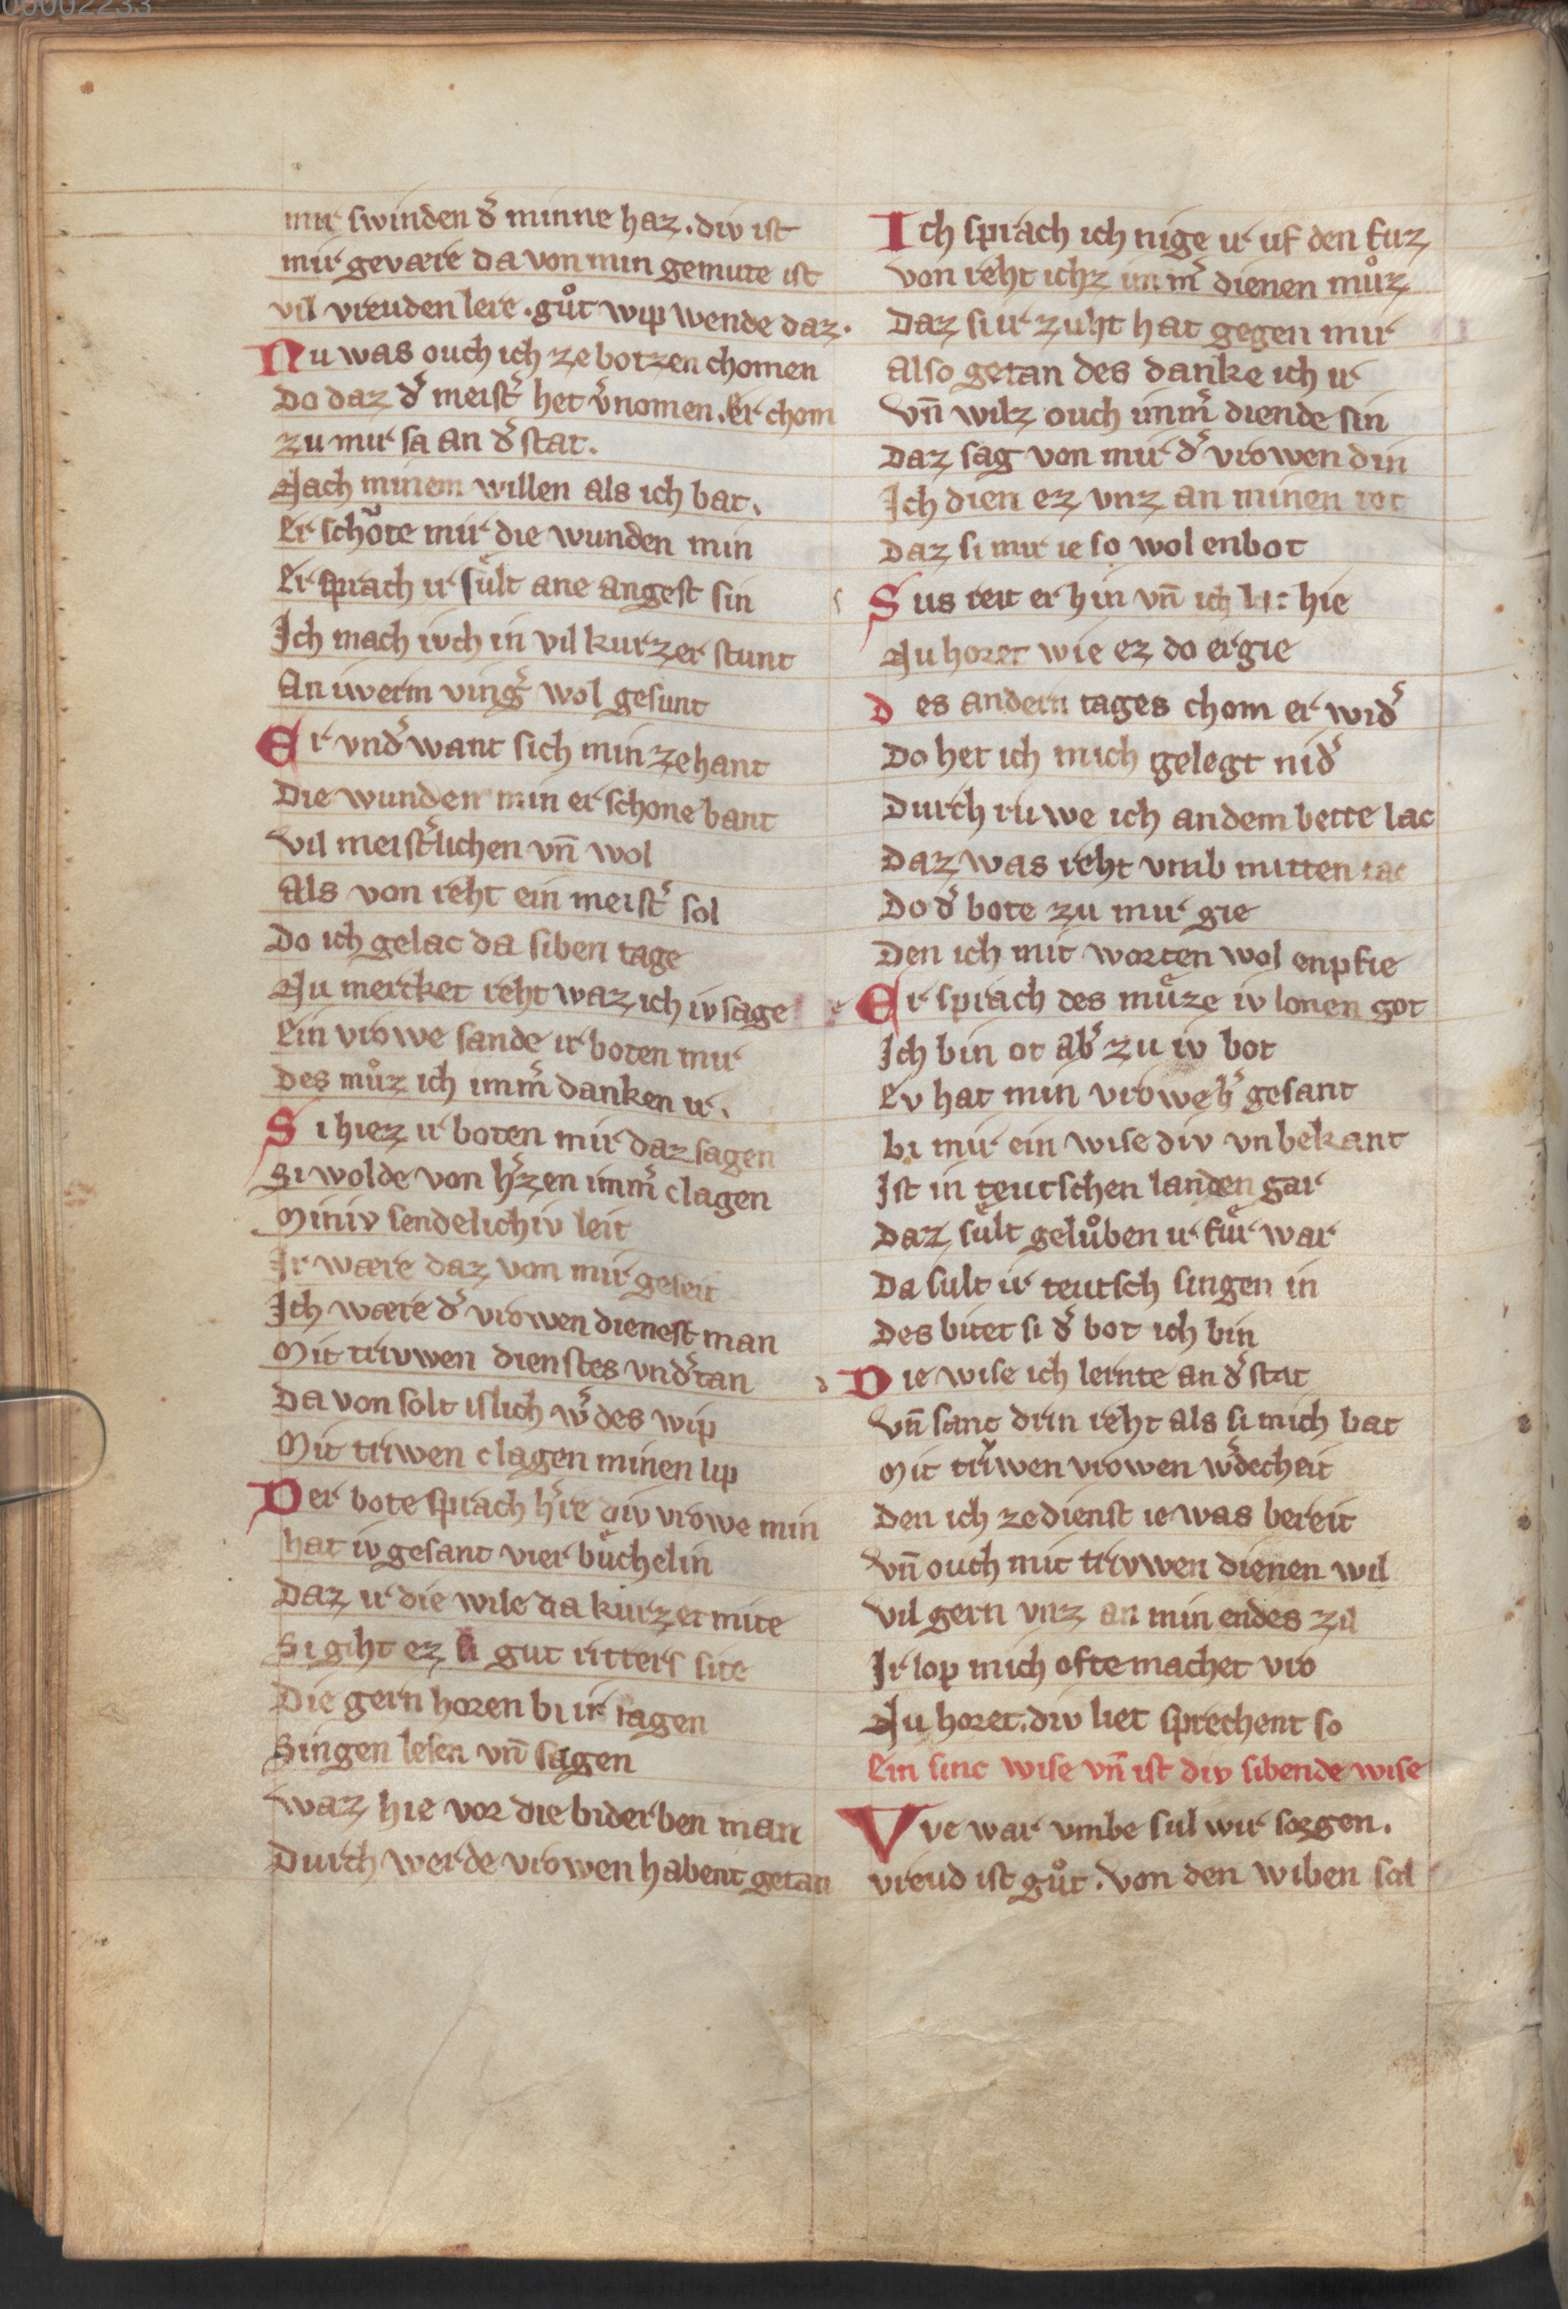 00002233
mir swinden d̾ minne haz. div ist
mir gevære da von min gemute ist
vil vreuden lere. gůt wip wende daz.
Nu was ouch ich ze botzen chomen
Do daz d̾ meist̾ het v̾nomen. Er chom
zu mir sa an d̾ stat.
Nach minem willen als ich bat.
Er schǒte mir die wunden min
Er sprach ir sült ane angest sin
Ich mach ivch in vil kurzer stunt
An iwerm ving̾ wol gesunt
Er vnd̾want sich min zehant
Die wunden min er schone bant
Vil meist̾lichen vn̄ wol
Als von reht ein meist̾ sol
Do ich gelac da siben tage
Nu mercket reht waz ich iv sage
Ein vrowe sande ir boten mir
Des můz ich imm̾ danken ir.
Si hiez ir boten mir daz sagen
Si wolde von h̾zen imm̾ clagen
Miniv sendelichiv leit
Ir wære daz von mir geseit
Ich wære d̾ vrowen dienest man
Mit trivwen dienstes vnd̾tan
Da von solt islich w̾des wip
Mit triwen clagen minen lip
Der bote sprach h̾re div vrowe min
hat iv gesant vier buͤchelin
Daz ir die wile da kurzet mite
Si giht ez si gut ritters site
Die gern horen bi ir tagen
Singen lesen vn̄ sagen
Waz hie vor die biderben man
Durch werde vrowen habent getan
Ich sprach ich nige ir uf den fuz
von reht ichz imm̾ dienen můz
Daz si ir zuht hat gegen mir
Also getan des danke ich ir
Vn̄ wilz ouch imm̾ diende sin
Daz sag von mir d̾ vrowen din
Ich dien ez vnz an minen tot
Daz si mir ie so wol enbot
Sus reit er hin vn̄ ich lac hie
Nu horet wie ez do ergie
des andern tages chom er wid̾
Do het ich mich gelegt nid̾
Durch ruwe ich an dem bette lac
Daz was reht vmb mitten tac
Do d̾ bote zu mir gie
Den ich mit worten wol enpfie
Er sprach des muͤze iv lonen got
Ich bin ot ab̾ zu iv bot
Ev hat min vrowe h̾ gesant
bi mir ein wise div vnbekant
Ist in teutschen landen gar
Daz sült gelůben ir für war
Da sult ir teutsch singen in
Des bitet si d̾ bot ich bin
Die wise ich lernte an d̾ stat
Vn̄ sanc drin reht als si mich bat
Mit triwen vrowen w̾decheit
Den ich ze dienst ie was bereit
Vn̄ ouch mit trivwen dienen wil
Vil gern vnz an min endes zil
Ir lop mich ofte machet vro
Nu horet. div liet sprechent so
Ein sinc wise vn̄ ist div sibende wise
Vve war vmbe sul wir sorgen.
vreud ist gůt. von den wiben sol